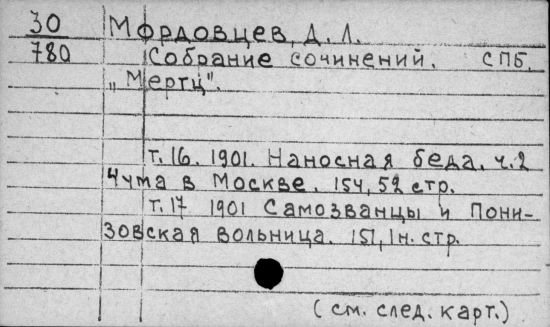 30 Мордовцев, Д. Л.
780 Собрание сочинений. СПБ.
„Мертц".
т. 16. 1901. Наносная беда. ч. 2
Чума в Москве. 154, 52 стр.
т. 17 1901 Самозванцы и Пони-
зовская вольница. 151, 1н. стр.
(см. след. карт.)